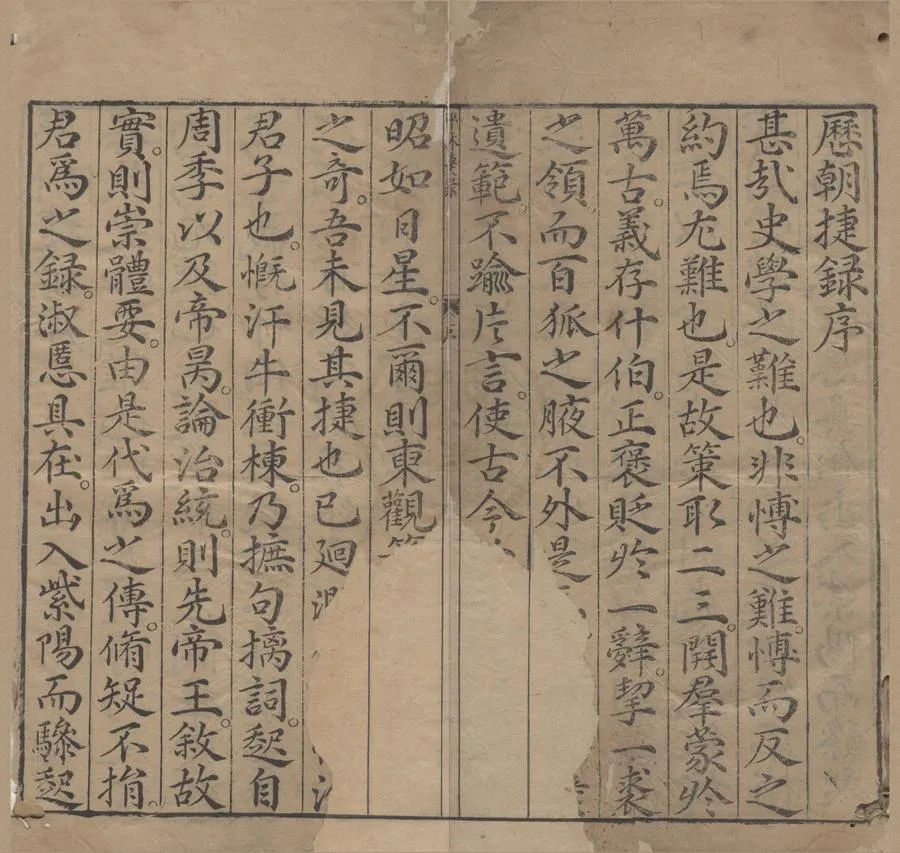 歷朝捷録序
甚矣史學之難也。非博之難。博而反之
約焉尤難也。是故策取二三。開羣蒙於
萬古。義存什伯。正褒貶於一辭。挈一裘
之領而百狐之腋不外是
遺範。不踰片言。使古今
昭如日星。不爾則東觀
之奇。吾未見其捷也已廻
君子也。慨汗牛衝棟。乃摭句摛詞。起自
周季以及帝昺。論治統。則先帝王。敘故
實。則崇體要。由是代爲之傳。脩短不捐。
君爲之録。淑慝具在。出入紫陽而驂起